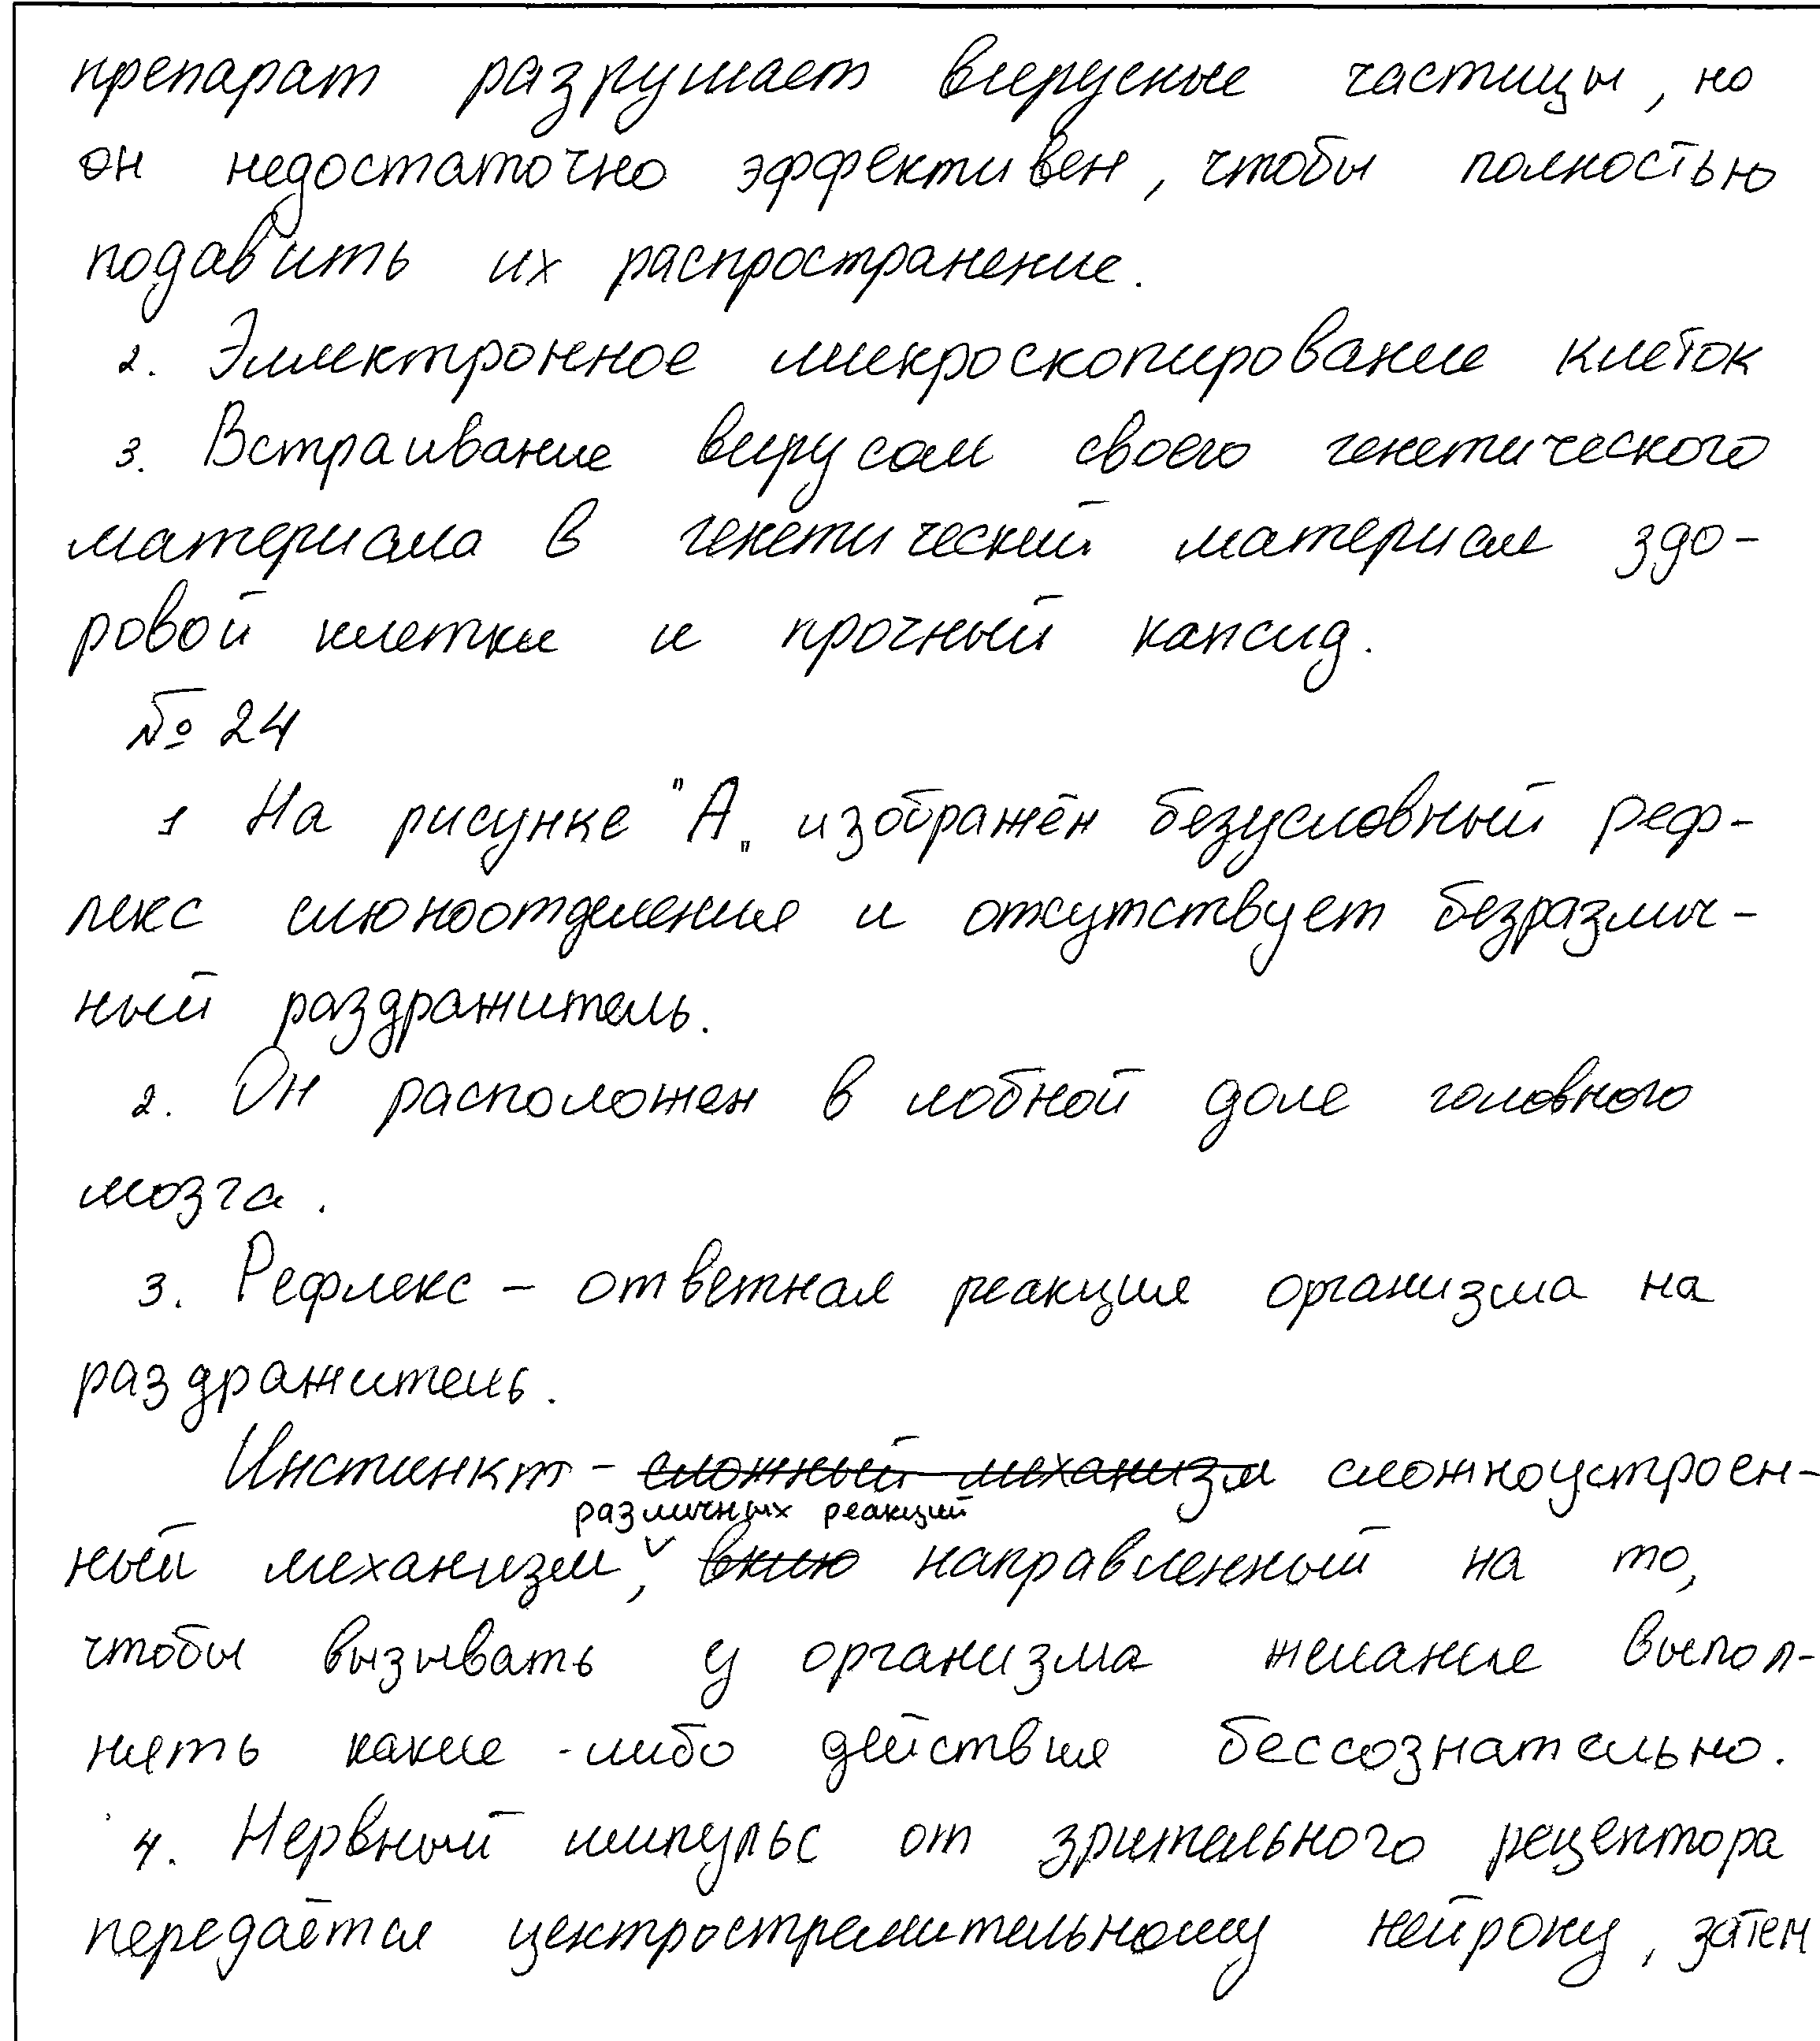 препарат разрушает вирусные частицы, но
он недостаточно эффективен, чтобы полностью
подавить их распространение.
2. Электронное микроскопирование клеток
3. Встраивание вирусом своего генетического
материала в генетический материал здо-
ровой клетки и прочный капсид.
№ 24
1 На рисунке "А„ изображён безусловный реф-
лекс слюноотделения и отсутствует безразлич-
ный раздражитель.
2. Он расположен в лобной доле головного
мозга.
3. Рефлекс – ответная реакция организма на
раздражитель.
Инстинкт – сложный механизм сложноустроен-
различных реакций
ный механизм, направленный на то,
чтобы вызывать у организма желание выпол-
нять какие-либо действия бессознательно.
4. Нервный импульс от зрительного рецектора
передаётся центростремительному нейрону, затем